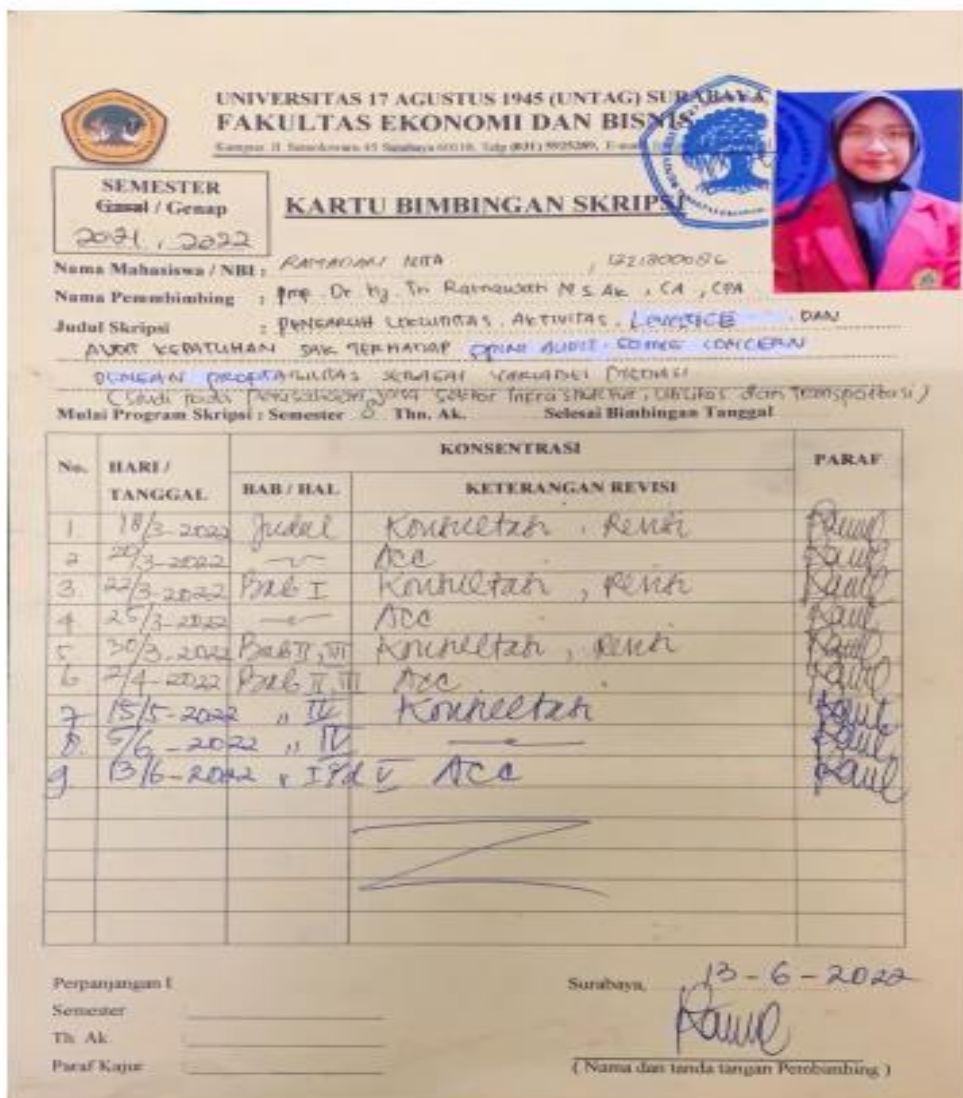 UNIVERSITAS 17 AGUSTUS 1945 (UNTAG) SURABAYA
FAKULTAS EKONOMI DAN BISNIS
Kampus Jl. Semolowaru 45 Surabaya 60118, Telp (031) 5925289,
SEMESTER
Gasal / Genap
2021, 2022
KARTU BIMBINGAN SKRIPSI
Nama Mahasiswa / NBI : RAMADANI NITA
Nama Pembimbing : Prof. Dr. Hj. Tri Ratnawati M S. Ak , CA , CPA
Judul Skripsi : PENGARUH LIKUIDITAS, AKTIVITAS, LEVERAGE DAN
AUDIT KEPATUHAN SAK TERHADAP OPINI AUDIT GOING CONCERN
DENGAN PROFITABILITAS SEBAGAI VARIABEL MEDIASI
(Studi pada Perusahaan jasa Sektor Infrastruktur, Utilitas dan Transportasi)
Mulai Program Skripsi : Semester 8 Thn. Ak. Selesai Bimbingan Tanggal
No. HARI / TANGGAL KONSENTRASI PARAF
BAB / HAL KETERANGAN REVISI
1. 18/3-2022 Judul Konsultasi, Revisi
2 20/3-2022 Acc
3. 22/3-2022 Bab I Konsultasi, Revisi
4 25/3-2022 Acc
5 30/3-2022 Bab II, III Konsultasi, Revisi
6 2/4-2022 Bab II, III Acc
7 15/5-2022 " IV Konsultasi
8. 5/6-2022 " IV
9. 13/6-2022 " I s/d V Acc
Perpanjangan I
Semester
Th. Ak.
Paraf Kajur :
Surabaya, 13-6-2022
( Nama dan tanda tangan Pembimbing )